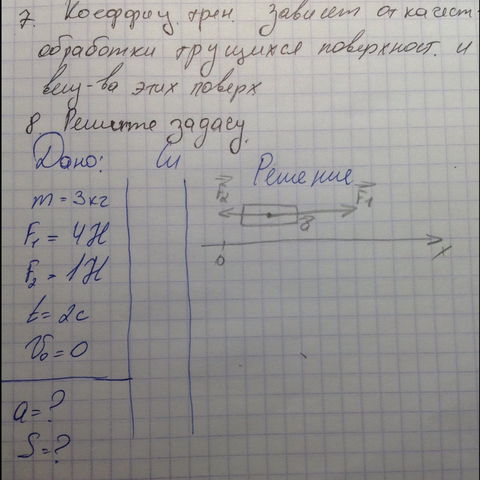 7. Коеффиц. трен. зависет от качест-
обработки трущихся поверхност. и
вещ-ва этих поверх
8 Решите задачу.
Дано: Си Решение
m = 3кг
F₁ = 4Н
F₂ = 1Н
t = 2с
V₀ = 0
a = ?
S = ?
F₂ F₁
0 x